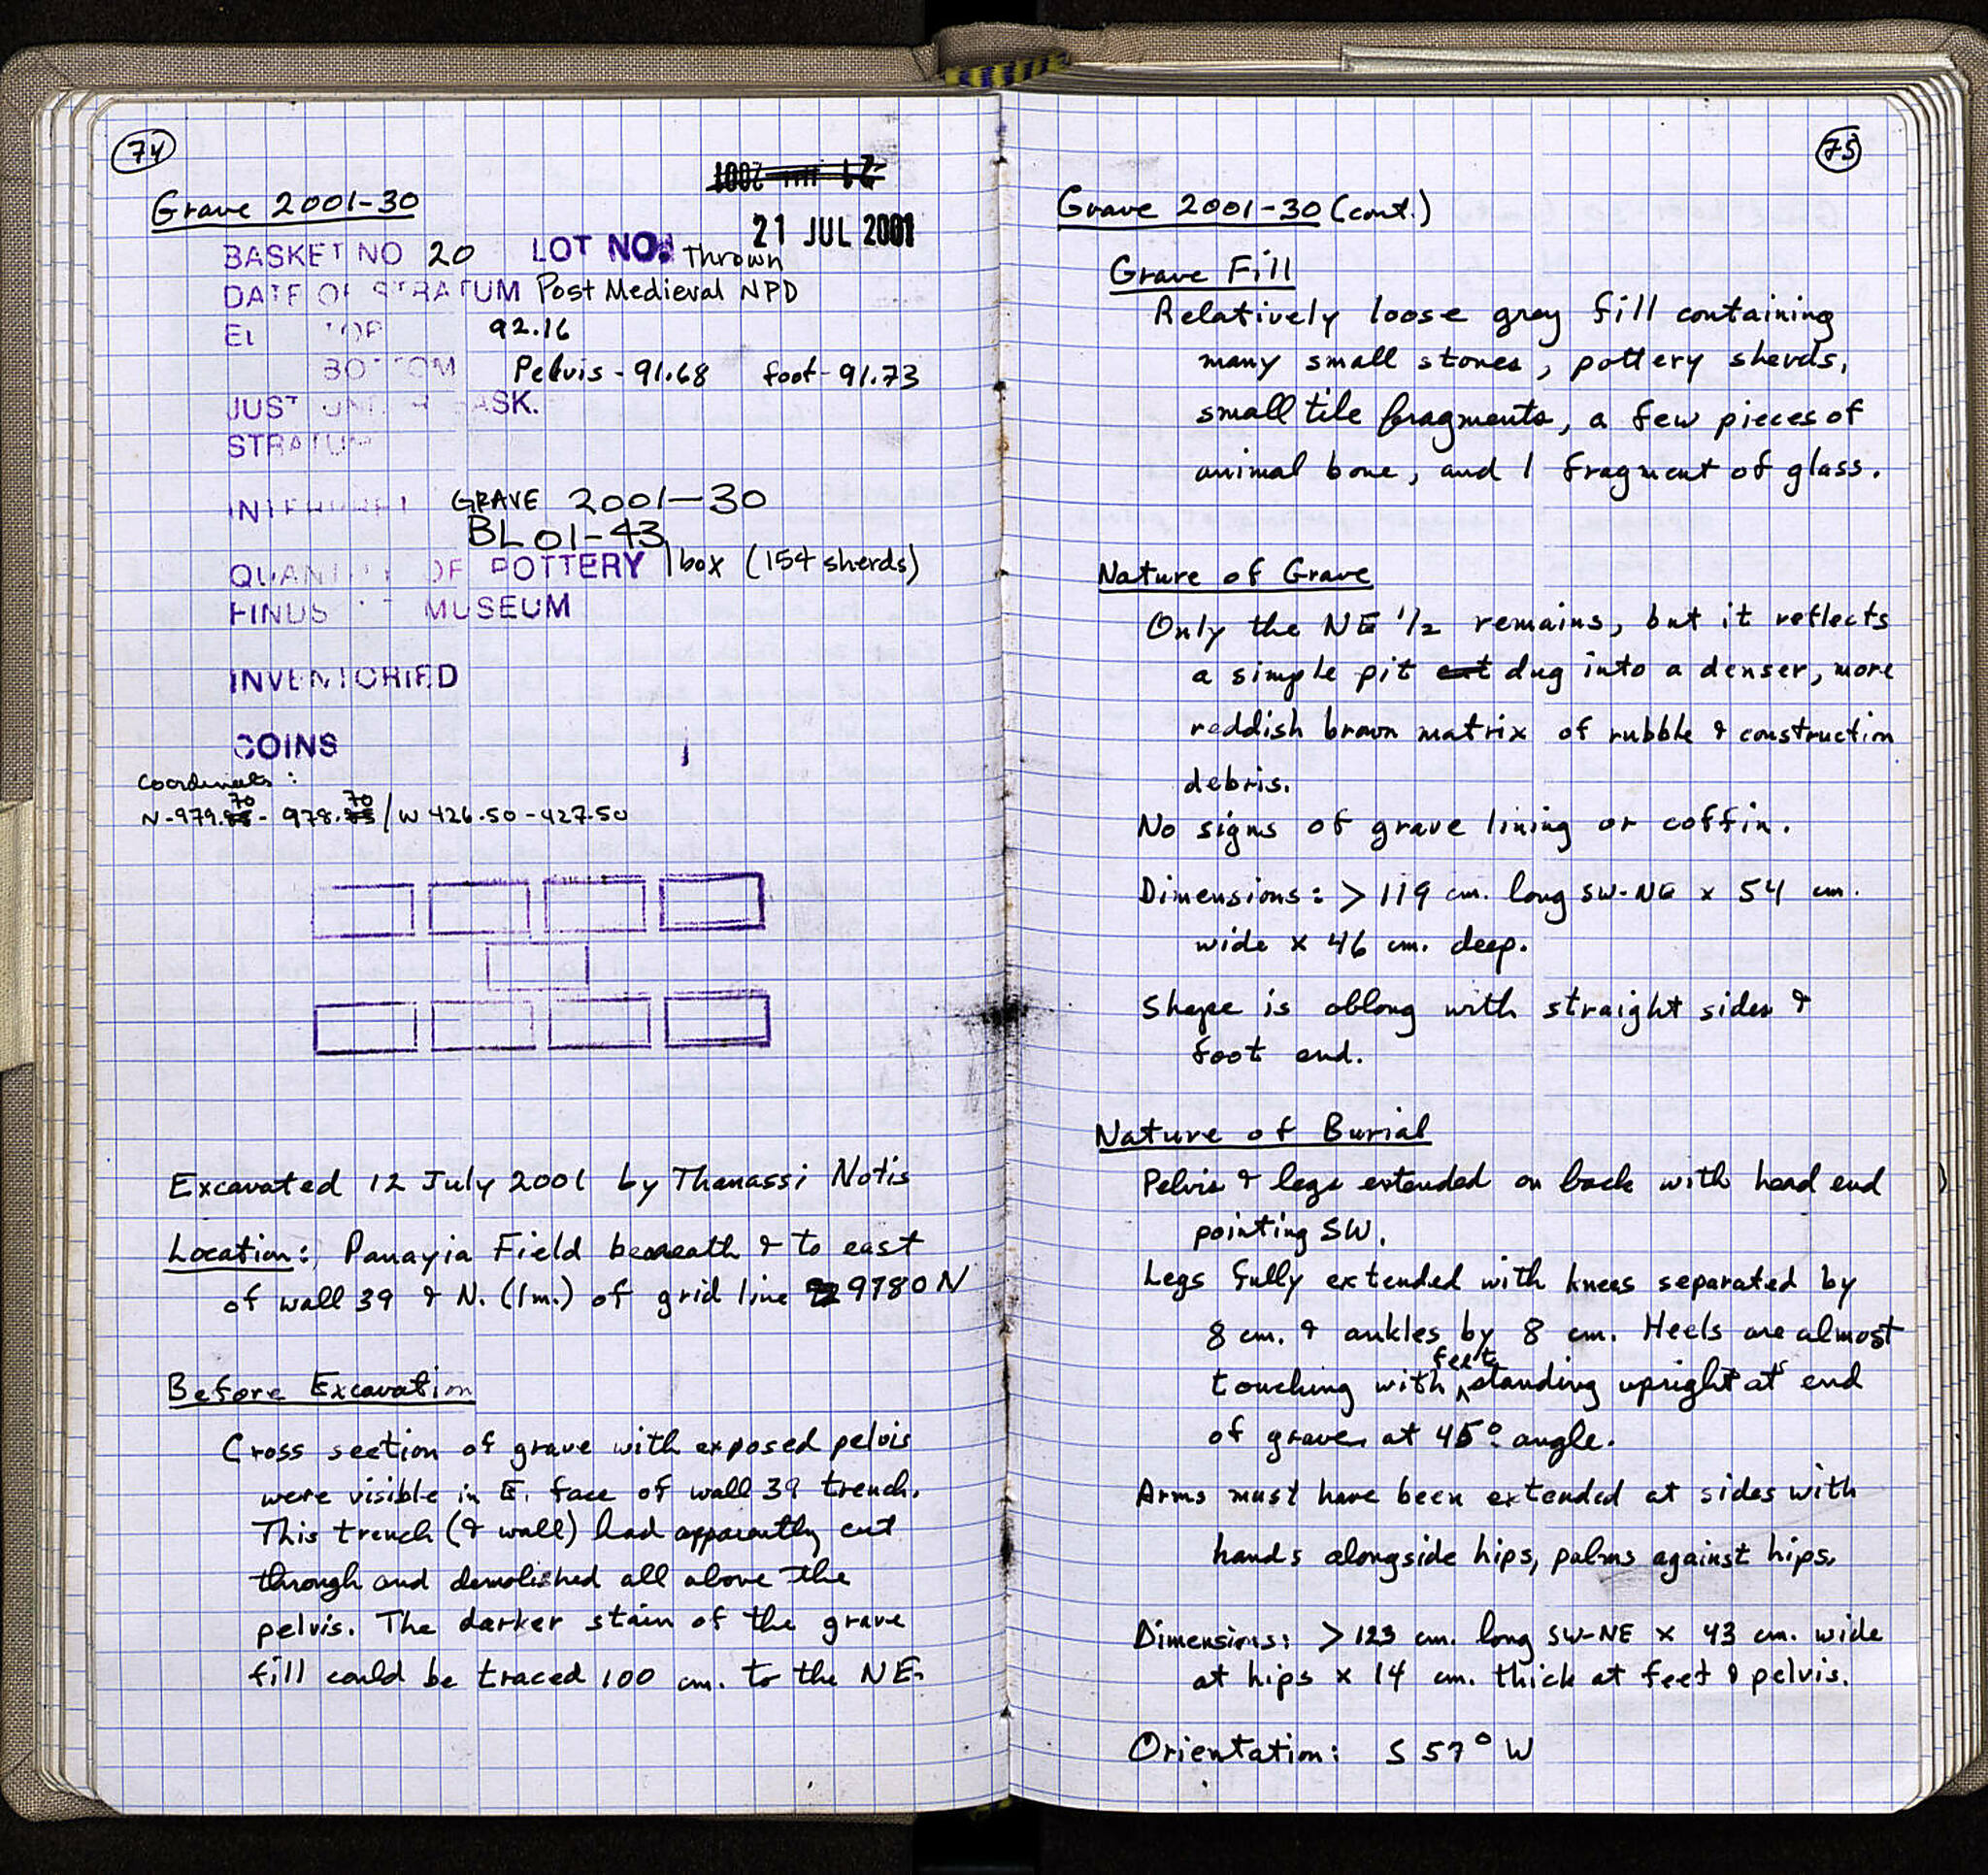 74
Grave 2001-30
21 JUL 2001
BASKET NO 20 LOT NO. Thrown
DATE OF STRATUM Post Medieval NPD
EL TOP 92.16
BOTTOM Pelvis - 91.68 foot - 91.73
JUST UNDER BASK.
STRATUM
INTERPRET GRAVE 2001-30
BL 01-43
QUANTITY OF POTTERY 1 box (154 sherds)
FINDS MUSEUM
INVENTORIED
COINS
Coordinates :
N-979.70 - 978.70 / W 426.50 - 427.50
Excavated 12 July 2001 by Thanassi Notis
Location: Panayia Field beneath & to east
of wall 39 & N. (1m.) of grid line 9780 N
Before Excavation
Cross section of grave with exposed pelvis
were visible in E. face of wall 39 trench.
This trench (& wall) had apparently cut
through and demolished all above the
pelvis. The darker stain of the grave
fill could be traced 100 cm. to the NE.
75
Grave 2001-30 (cont.)
Grave Fill
Relatively loose gray fill containing
many small stones, pottery sherds,
small tile fragments, a few pieces of
animal bone, and 1 fragment of glass.
Nature of Grave
Only the NE 1/2 remains, but it reflects
a simple pit cut dug into a denser, more
reddish brown matrix of rubble & construction
debris.
No signs of grave lining or coffin.
Dimensions: > 119 cm. long SW-NE x 54 cm.
wide x 46 cm. deep.
Shape is oblong with straight sides &
foot end.
Nature of Burial
Pelvis & legs extended on back with head end
pointing SW.
Legs fully extended with knees separated by
8 cm. & ankles by 8 cm. Heels are almost
touching with feet standing upright at end
of grave at 45° angle.
Arms must have been extended at sides with
hands alongside hips, palms against hips.
Dimensions: > 123 cm. long SW-NE x 43 cm. wide
at hips x 14 cm. thick at feet & pelvis.
Orientation: S 57° W